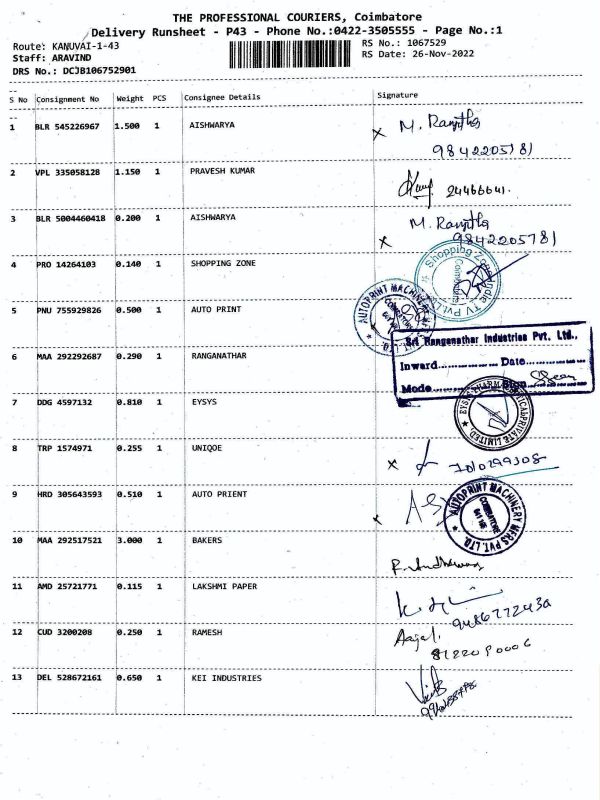 THE PROFESSIONAL COURIERS, Coimbatore
Delivery Runsheet - P43 - Phone No.:0422-3505555 - Page No.:1
Route: KANUVAI-1-43
RS No.: 1067529
Staff: ARAVIND
RS Date: 26-Nov-2022
DRS No.: DCJB106752901
S No Consignment No Weight PCS Consignee Details Signature
1 BLR 545226967 1.500 1 AISHWARYA M. Ranjitha
9842205781
2 VPL 335058128 1.150 1 PRAVESH KUMAR 24466641.
3 BLR 5004460418 0.200 1 AISHWARYA M. Ranjitha
9842205781
4 PRO 14264103 0.140 1 SHOPPING ZONE
Shopping Zone
TV Pvt.Ltd
5 PNU 755929826 0.500 1 AUTO PRINT
AUTOPRINT MACHINERY MFRS PVT. LTD.
6 MAA 292292687 0.290 1 RANGANATHAR
Sri Ranganathar Industries Pvt. Ltd.,
Inward Date
Mode Sign
7 DDG 4597132 0.810 1 EYSYS
PRIVATE LIMITED
8 TRP 1574971 0.255 1 UNIQOE
9 HRD 305643593 0.510 1 AUTO PRIENT
AUTOPRINT MACHINERY MFRS PVT. LTD.
COIMBATORE
641 105
10 MAA 292517521 3.000 1 BAKERS
11 AMD 25721771 0.115 1 LAKSHMI PAPER
12 CUD 3200208 0.250 1 RAMESH
13 DEL 528672161 0.650 1 KEI INDUSTRIES